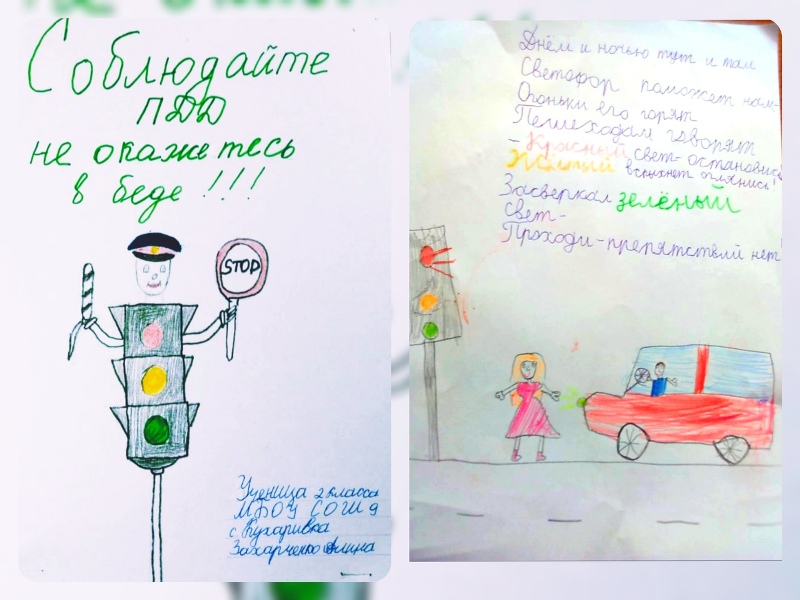 Соблюдайте
ПДД
не окажетесь
в беде!!!
STOP
Ученица 2 класса
МБОУ СОШ 9
с. Кухаривка
Захарченко Алина
Днём и ночью тут и там
Светофор поможет нам-
Огоньки его горят
Пешеходам говорят
-Красный свет-остановись
Жёлтый вспыхнет оглянись!
Засверкал зелёный
свет-
Проходи-препятствий нет!